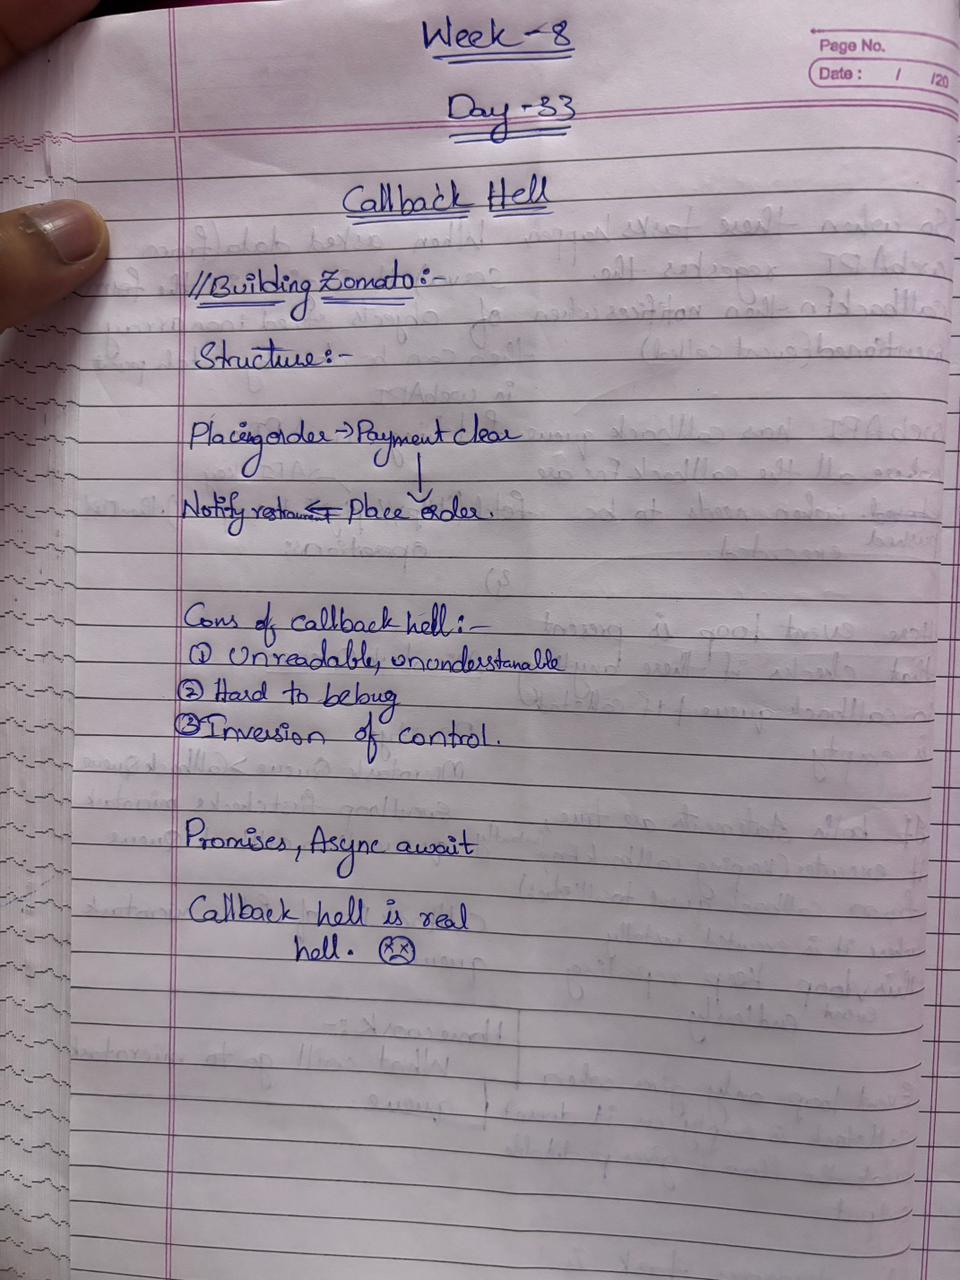 Week-8
Page No.
Date : / /20
Day-33
Callback Hell
//Building Zomato:-
Structure:-
Placing order → Payment clear
↓
Notify ← Place order.
Cons of callback hell:-
① Unreadable, ununderstanable
② Hard to bebug
③ Inversion of control.
Promises, Async await
Callback hell is real
hell.